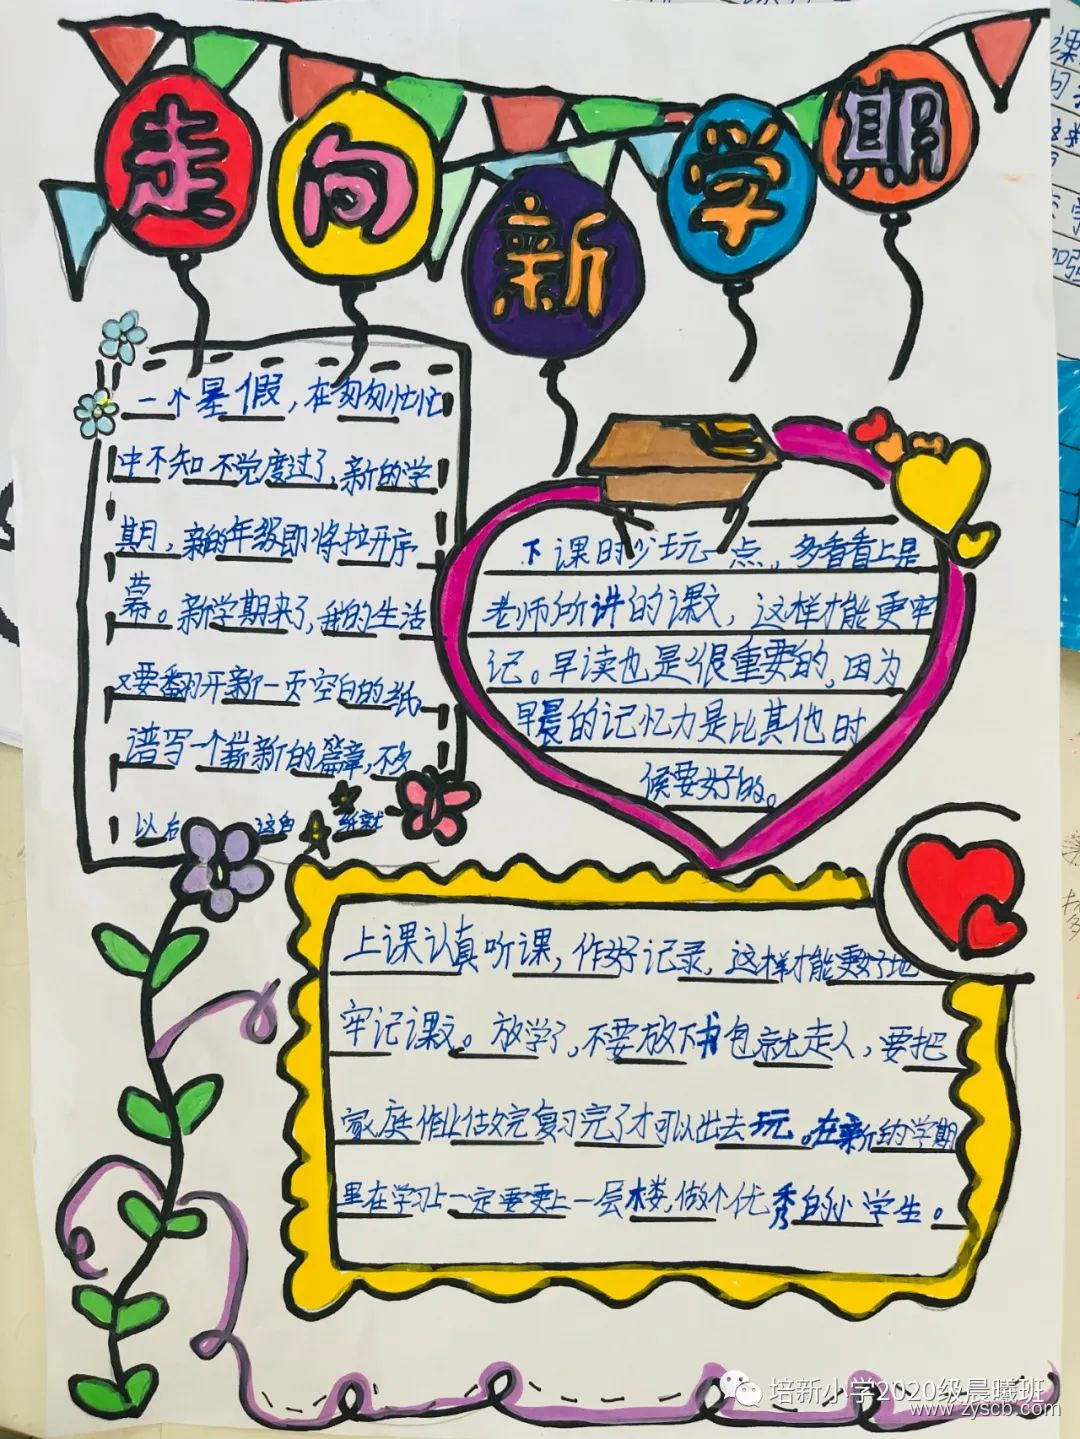 走向新学期
一个暑假，在匆匆忙忙
中不知不觉度过了，新的学
期，新的年级即将拉开序
幕。新学期来了，我的生活
又要翻开新一页空白的纸，
谱写一个崭新的篇章，不久
以后 这白 纸就
下课时少玩一点，多看看上是
老师所讲的课文，这样才能更牢
记。早读也是很重要的，因为
早晨的记忆力是比其他时
候要好的。
上课认真听课，作好记录，这样才能更好地
牢记课文。放学了，不要放下书包就走人，要把
家庭作业做完复习完了才可以出去玩。在新的学期
里在学习上一定要更上一层楼，做个优秀的小学生。
培新小学2020级晨曦班
www.zyscb.com